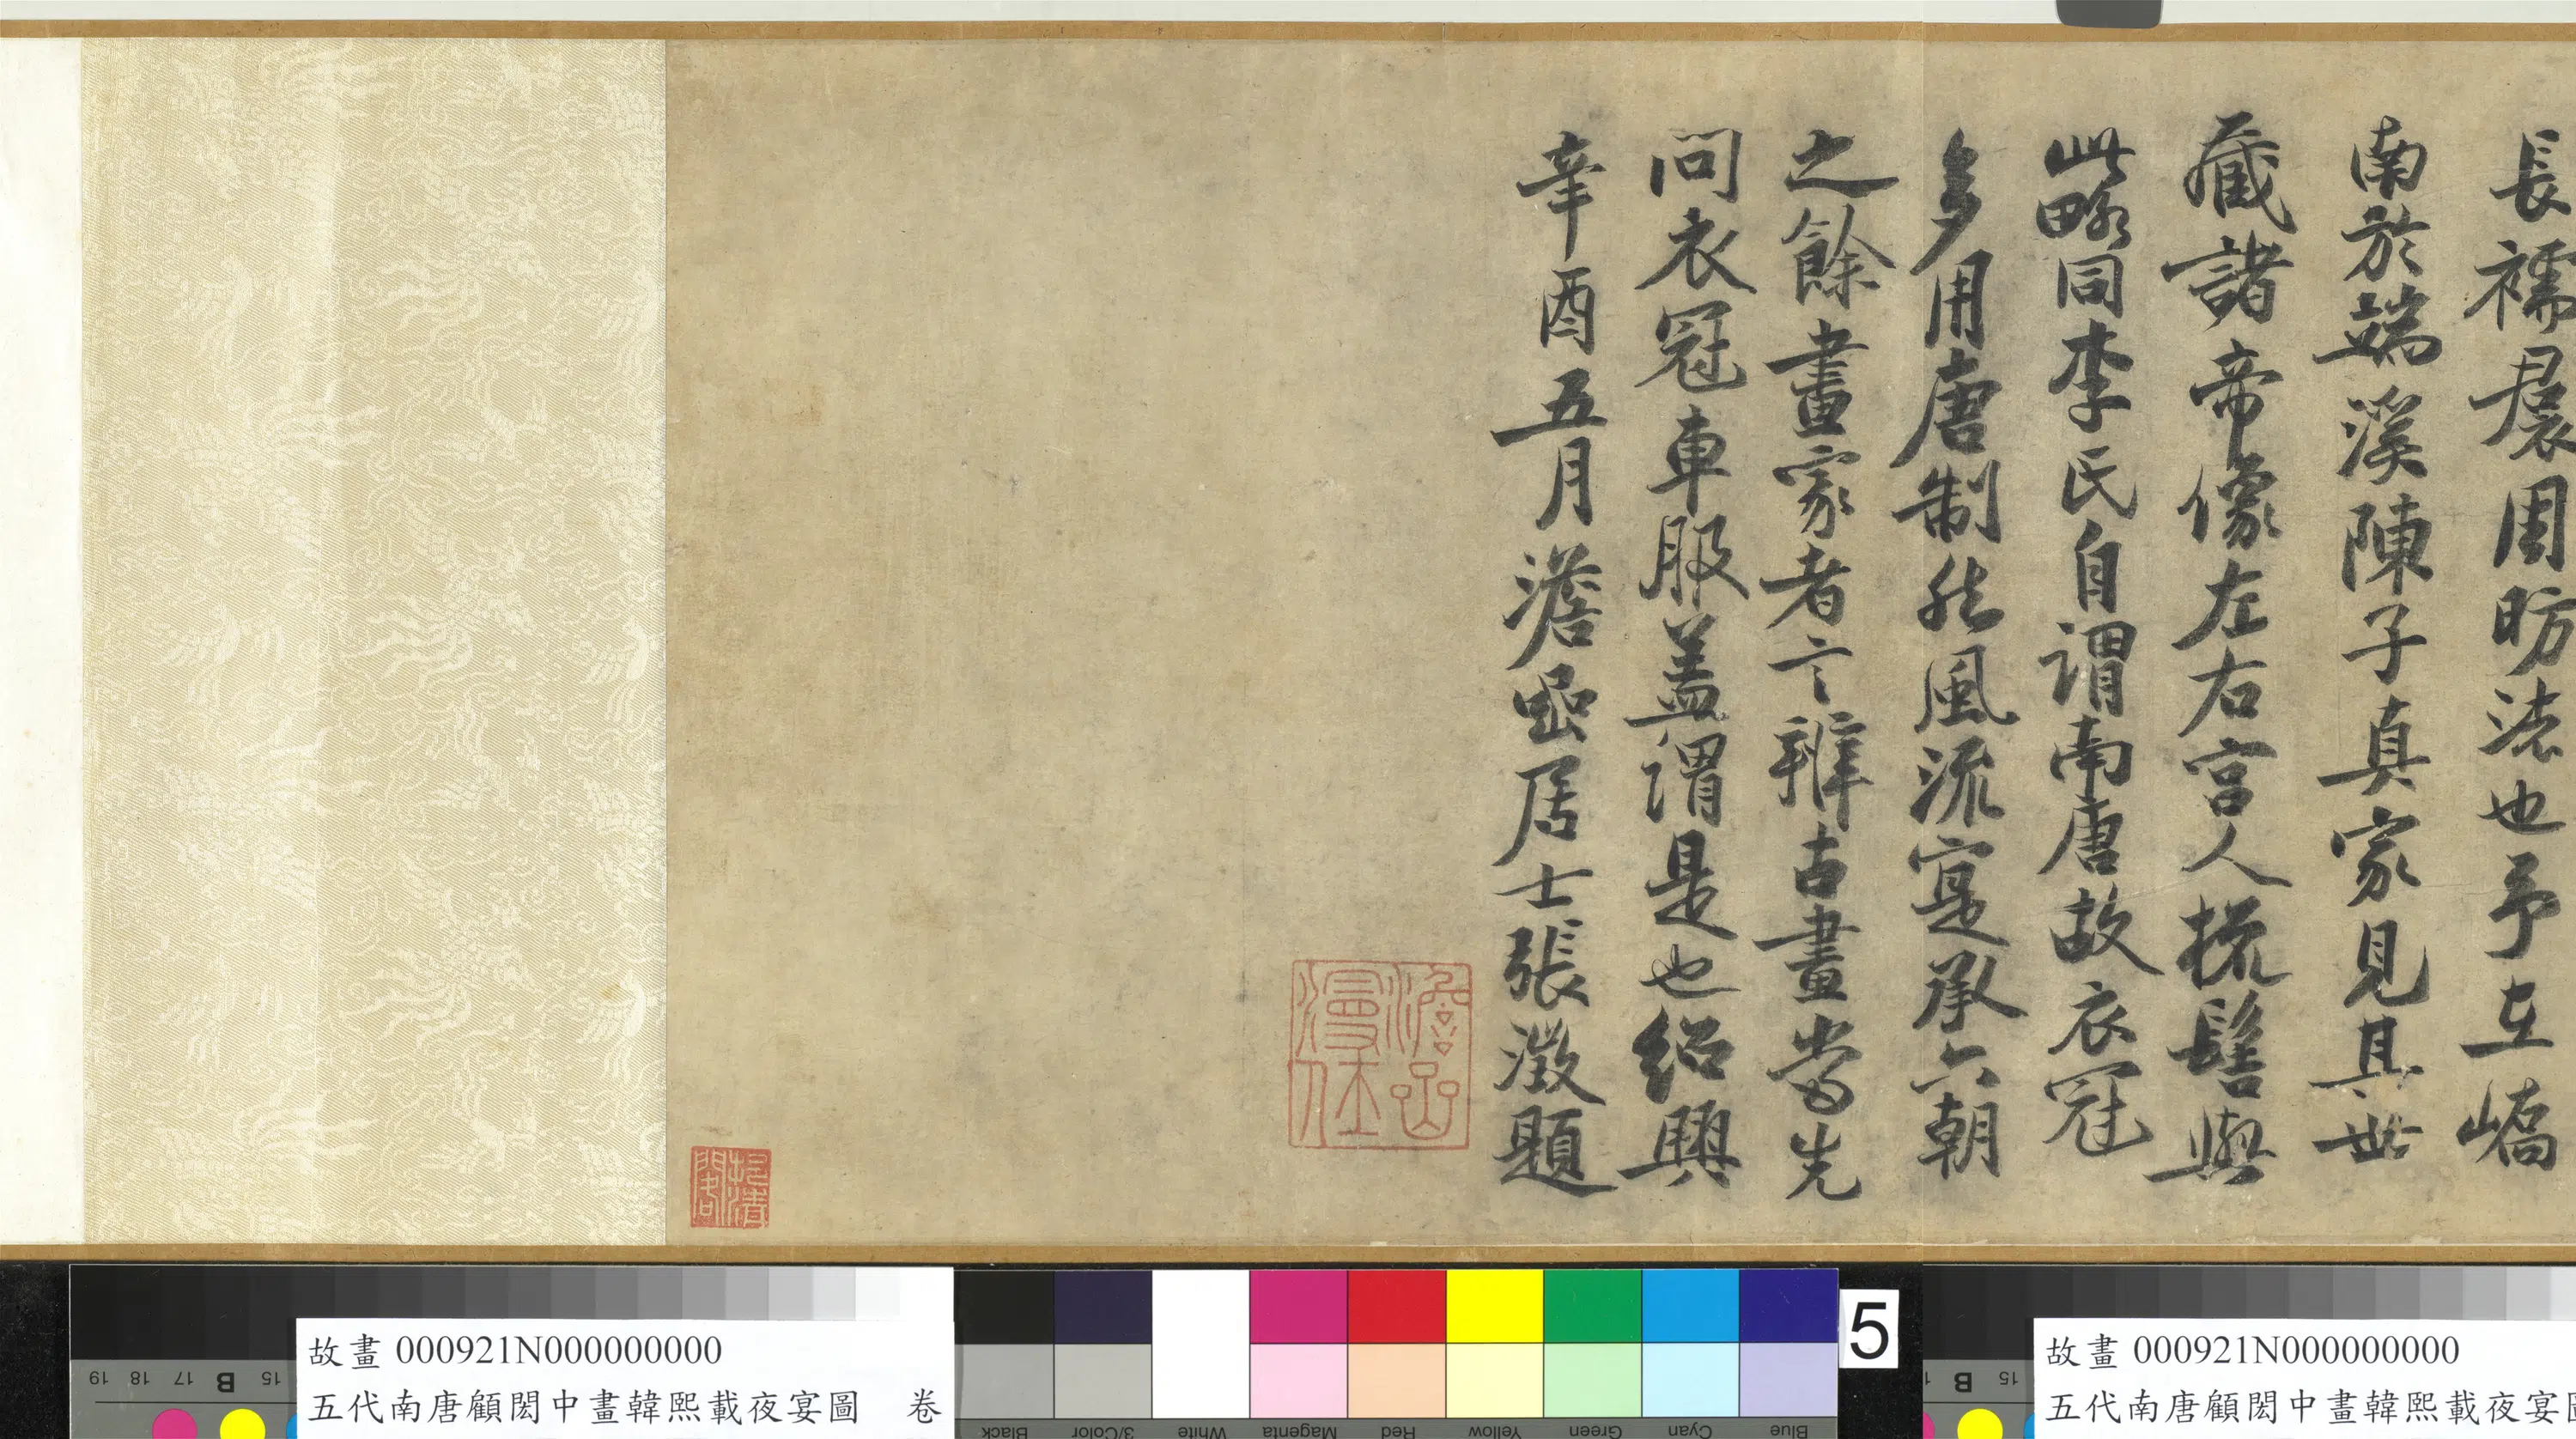 長襦裙周昉法也予在嶠
南於端溪陳子真家見其世
藏諸帝像左右宮人梳髻與
此略同李氏自謂南唐故衣冠
多用唐制然風流寔承六朝
之餘畫家者言辨古畫當先
問衣冠車服蓋謂是也紹興
辛酉五月澹嵒居士張澂題
澹嵒
漫仕
故畫 000921N000000000
五代南唐顧閎中畫韓熙載夜宴圖 卷
19 18 17 B 15
Black 3/Color White Magenta Red Yellow Green Cyan Blue
5
B 15
故畫 000921N000000000
五代南唐顧閎中畫韓熙載夜宴圖